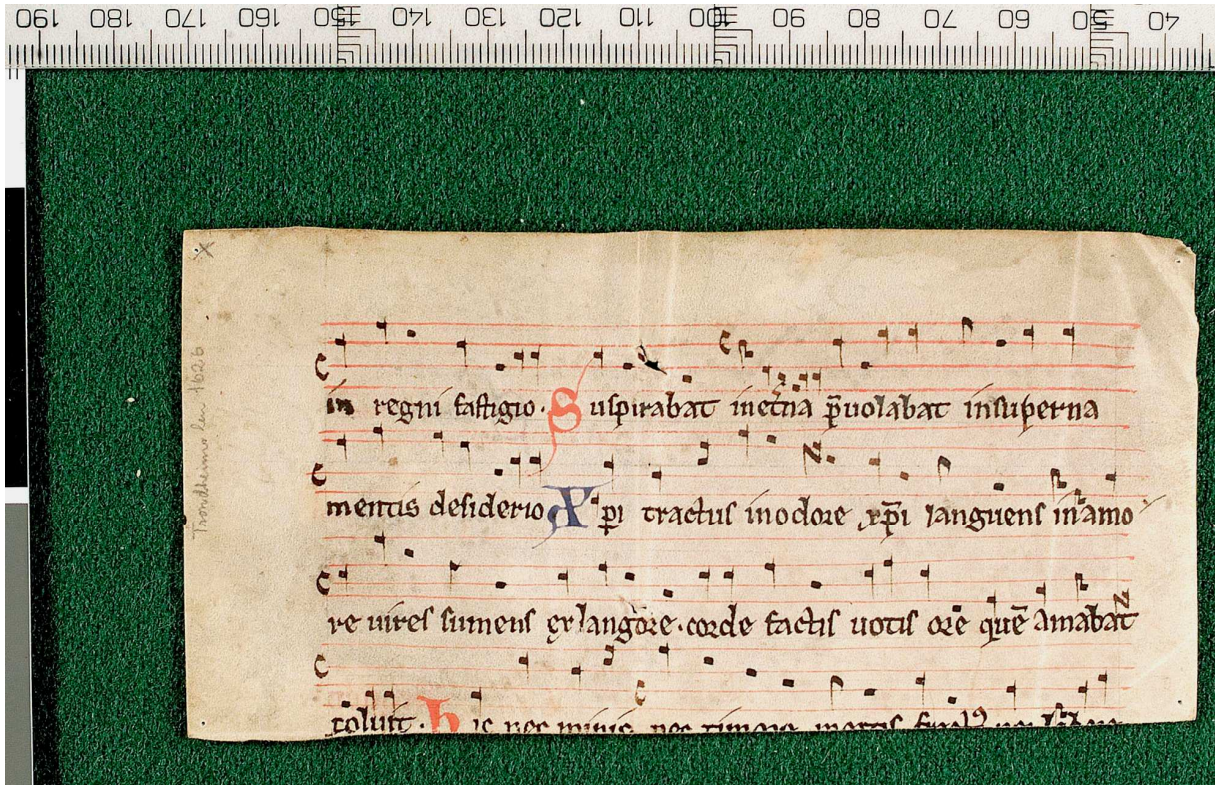 190 180 170 160 150 140 130 120 110 100 90 80 70 60 50 40
in regni fastigio. Suspirabat inet̄na p̄uolabat insuperna
mentis desiderio Xp̄i tractus inodore xp̄i languens in amo
re uires sumens ex langore. corde factis uotis ore quē amabat
coluit. hic nec minis nec timore mortis
Trondheims len 1626